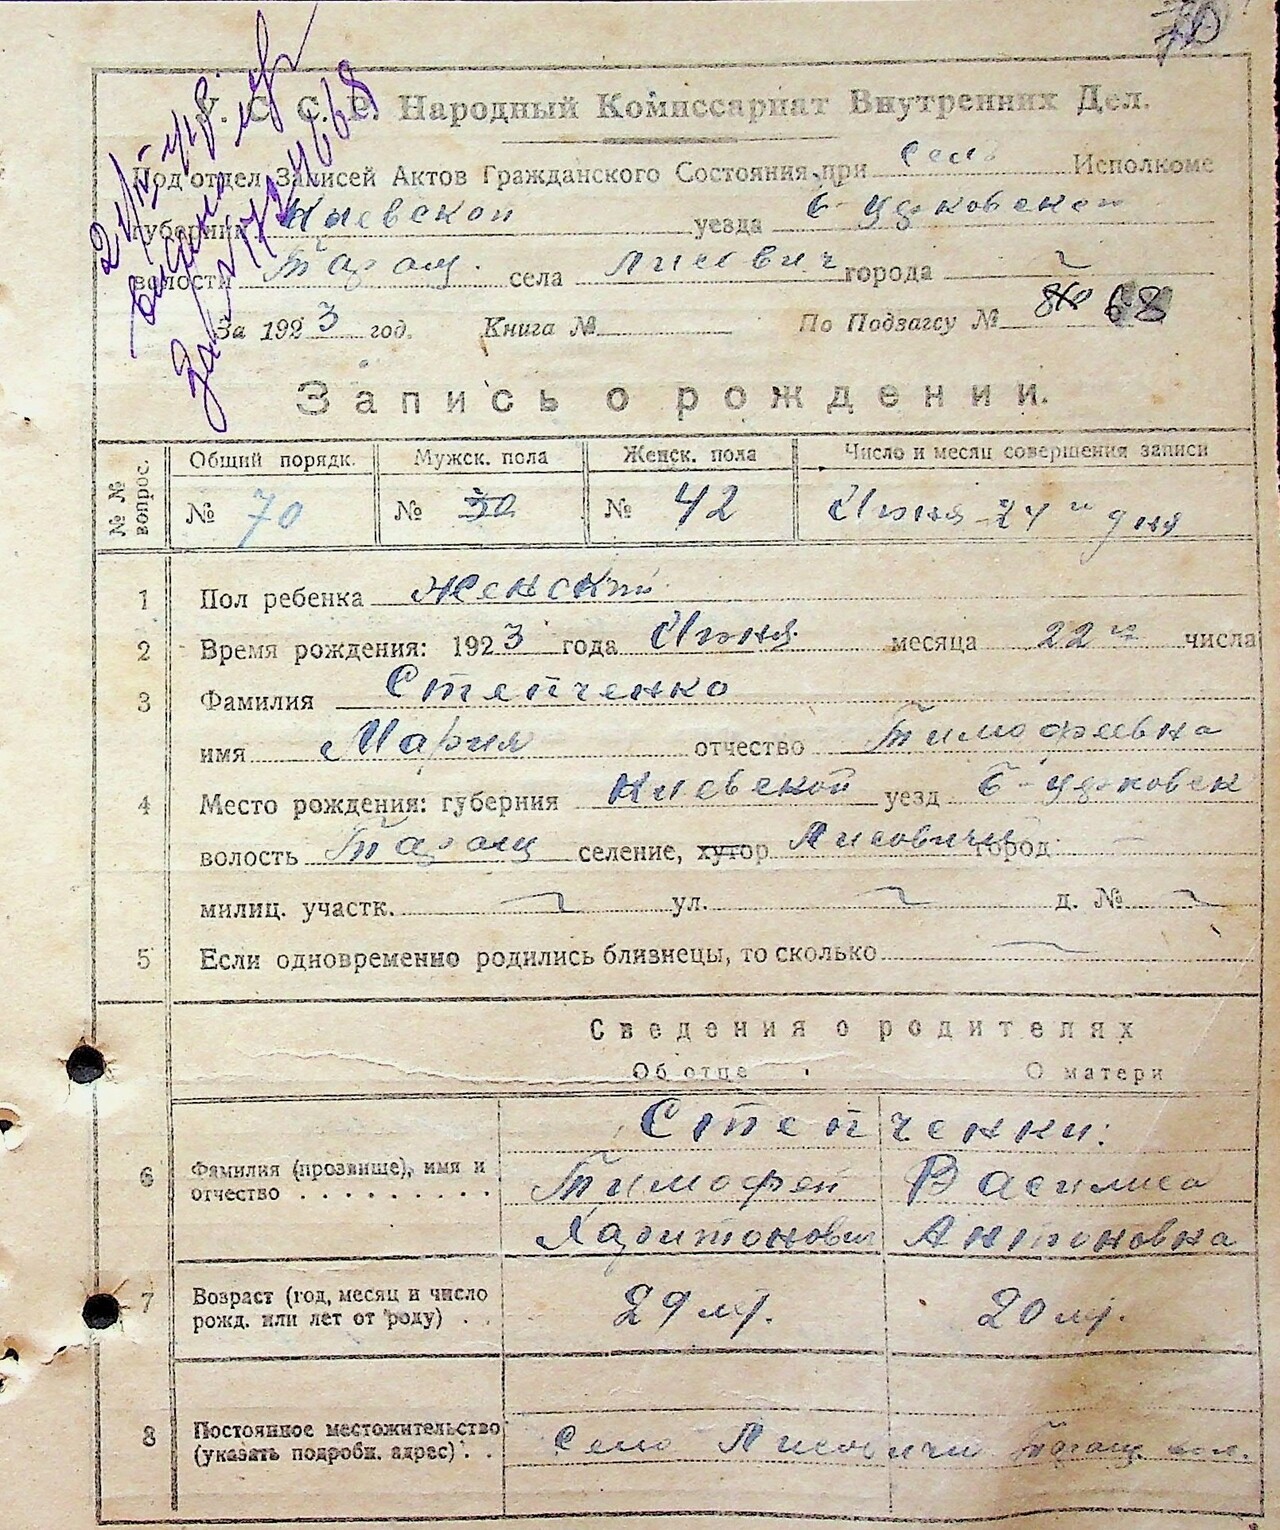 70
У. С. С. Р. Народный Комиссариат Внутренних Дел.
Под'отдел Записей Актов Гражданского Состояния при сель Исполкоме
губернии Киевской уезда Б-Церковской
волости Таращ. села Лисович города
За 1923 год. Книга № По Подзагсу № 68
Запись о рождении.
№ № вопрос. Общий порядк. Мужск. пола Женск. пола Число и месяц совершения записи
№ 70 № 30 № 42 Июня 24 го дня
1 Пол ребенка Женский
2 Время рождения: 1923 года Июня месяца 22 го числа
3 Фамилия Степченко
имя Мария отчество Тимофеевна
4 Место рождения: губерния Киевской уезд Б-Церковск
волость Таращ селение, хутор Лисовичи город
милиц. участк. ул. д. №
5 Если одновременно родились близнецы, то сколько
Сведения о родителях
Об отце О матери
Степченки:
6 Фамилия (прозвище), имя и Тимофей Василиса
отчество . . . . . . . . . . Харитонович Антоновна
7 Возраст (год, месяц и число
рожд. или лет от роду) . . 29 лет. 20 лет.
8 Постоянное местожительство
(указать подробн. адрес) . . Село Лисовичи Таращ. вол.